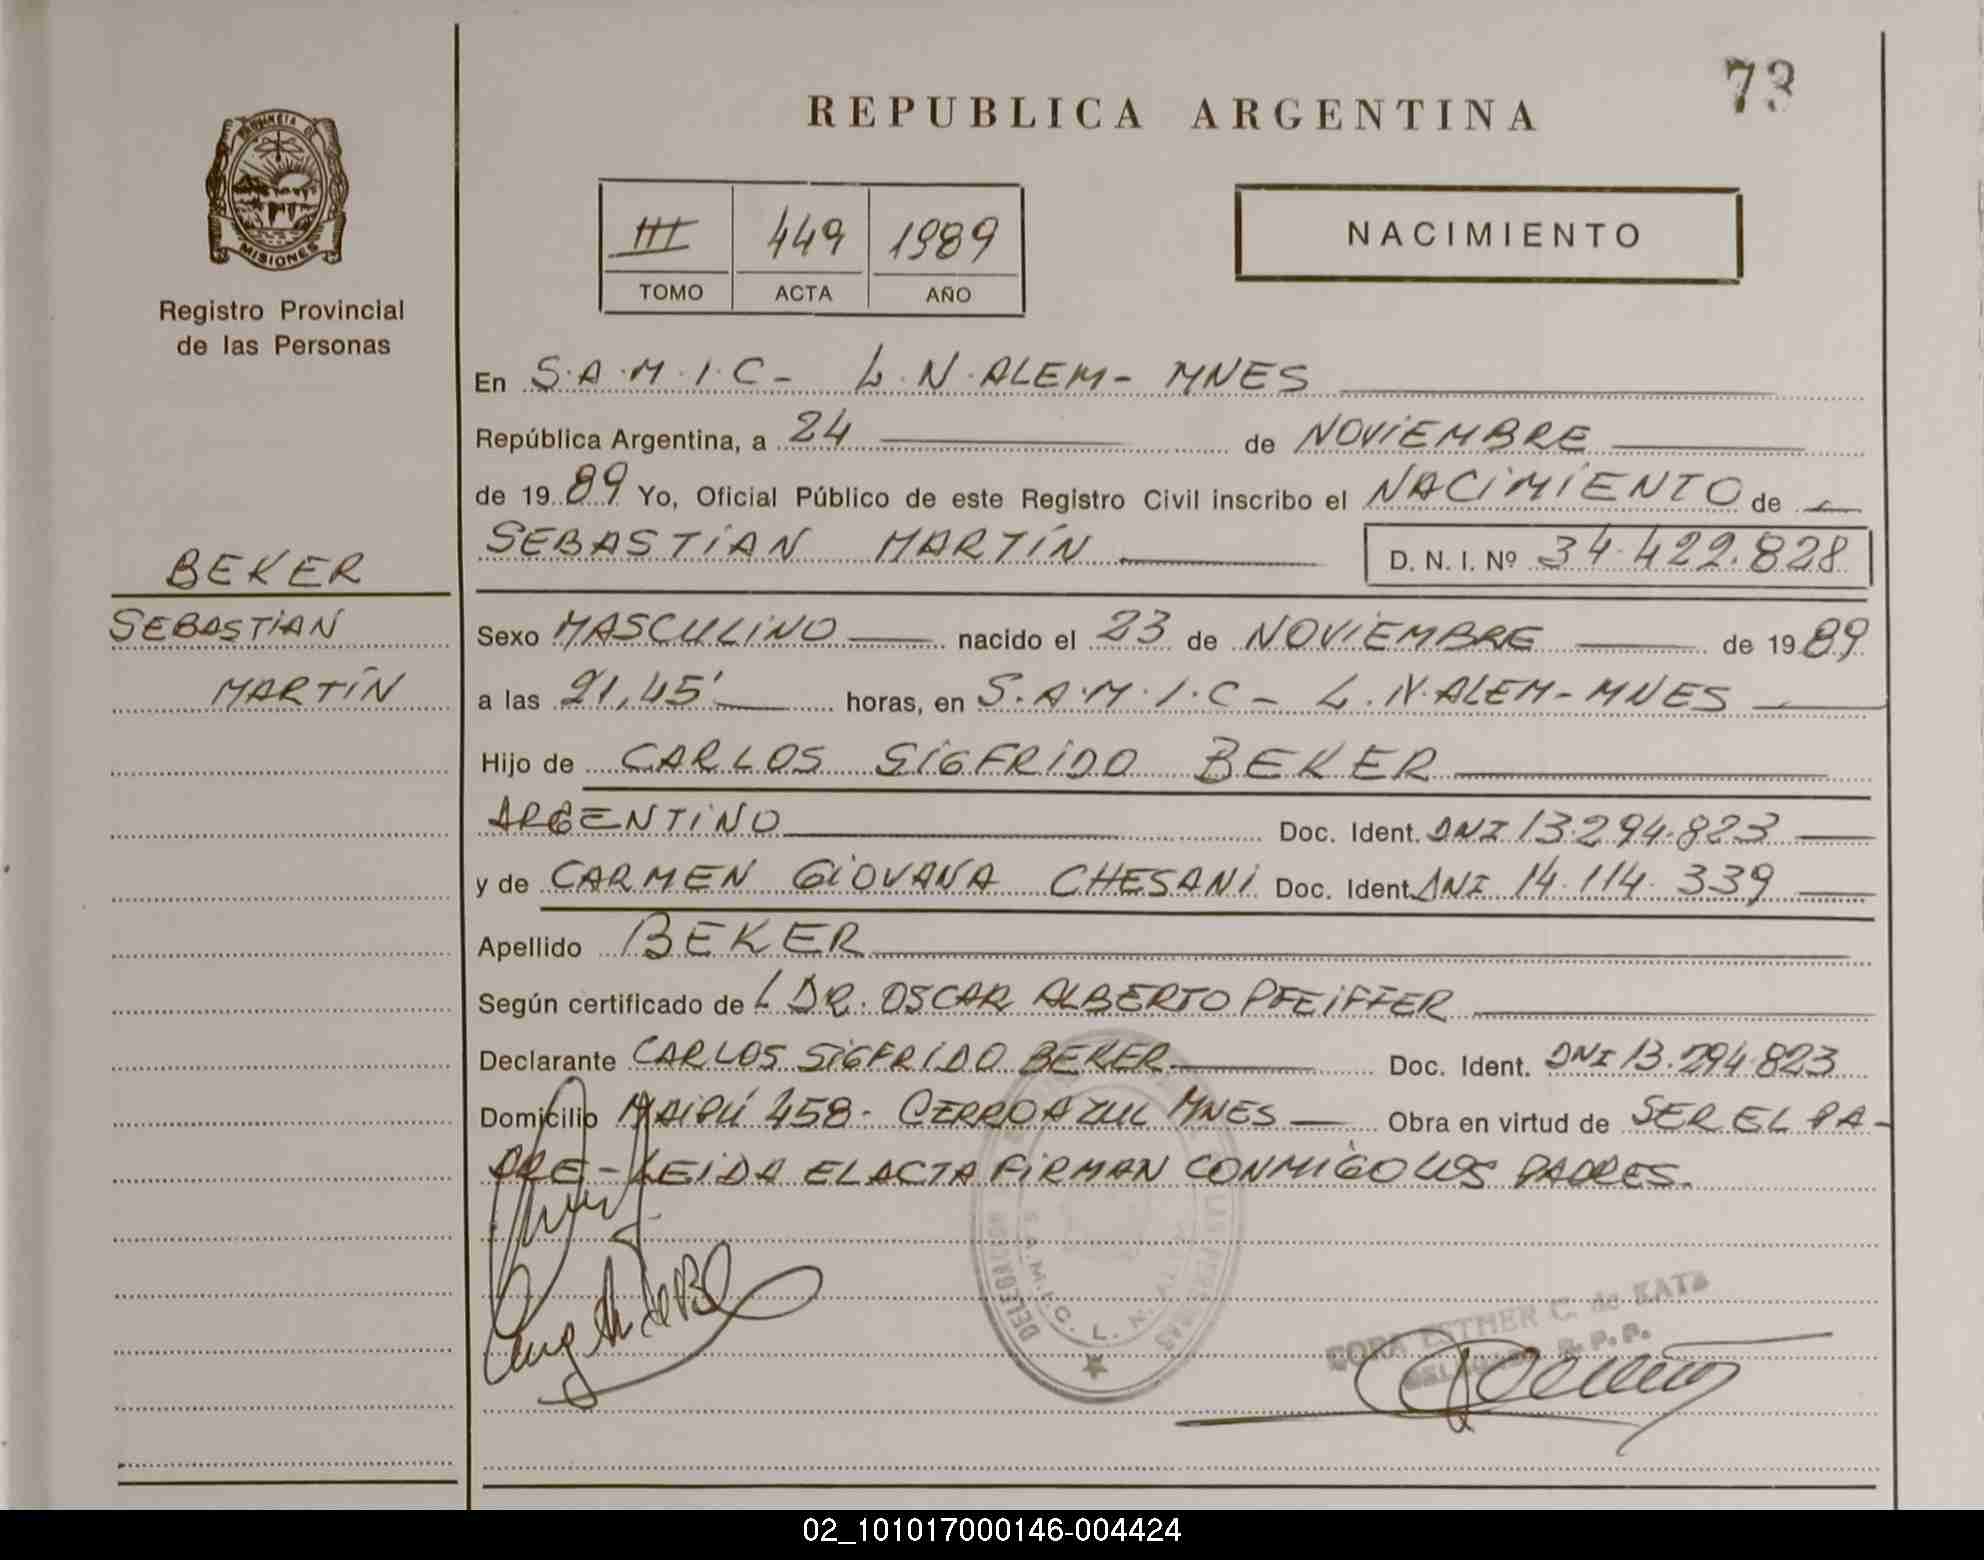 73
REPUBLICA ARGENTINA
PROVINCIA DE
MISIONES
Registro Provincial
de las Personas
III 449 1989
TOMO ACTA AÑO
NACIMIENTO
En S.A.M.I.C- L.N.ALEM- MNES
República Argentina, a 24 de NOVIEMBRE
de 1989 Yo, Oficial Público de este Registro Civil inscribo el NACIMIENTO de
SEBASTIAN MARTÍN D. N. I. Nº 34.422.828
BEKER
SEBASTIAN
MARTÍN
Sexo MASCULINO nacido el 23 de NOVIEMBRE de 1989
a las 21,45' horas, en S.A.M.I.C- L.N.ALEM-MNES
Hijo de CARLOS SIGFRIDO BEKER
ARGENTINO Doc. Ident. DNI 13.294.823
y de CARMEN GIOVANA CHESANI Doc. Ident. DNI 14.114.339
Apellido BEKER
Según certificado de L DR. OSCAR ALBERTO PFEIFFER
Declarante CARLOS SIGFRIDO BEKER Doc. Ident. DNI 13.294.823
Domicilio MAIPÚ 458- CERRO AZUL MNES Obra en virtud de SER EL PA-
DRE- LEIDA EL ACTA FIRMAN CONMIGO LOS PADRES.
DELEGACION
S.A.M.I.C. L. N.
CORA ESTHER C. de KATZ
DELEGADA R. P. P.
02_101017000146-004424